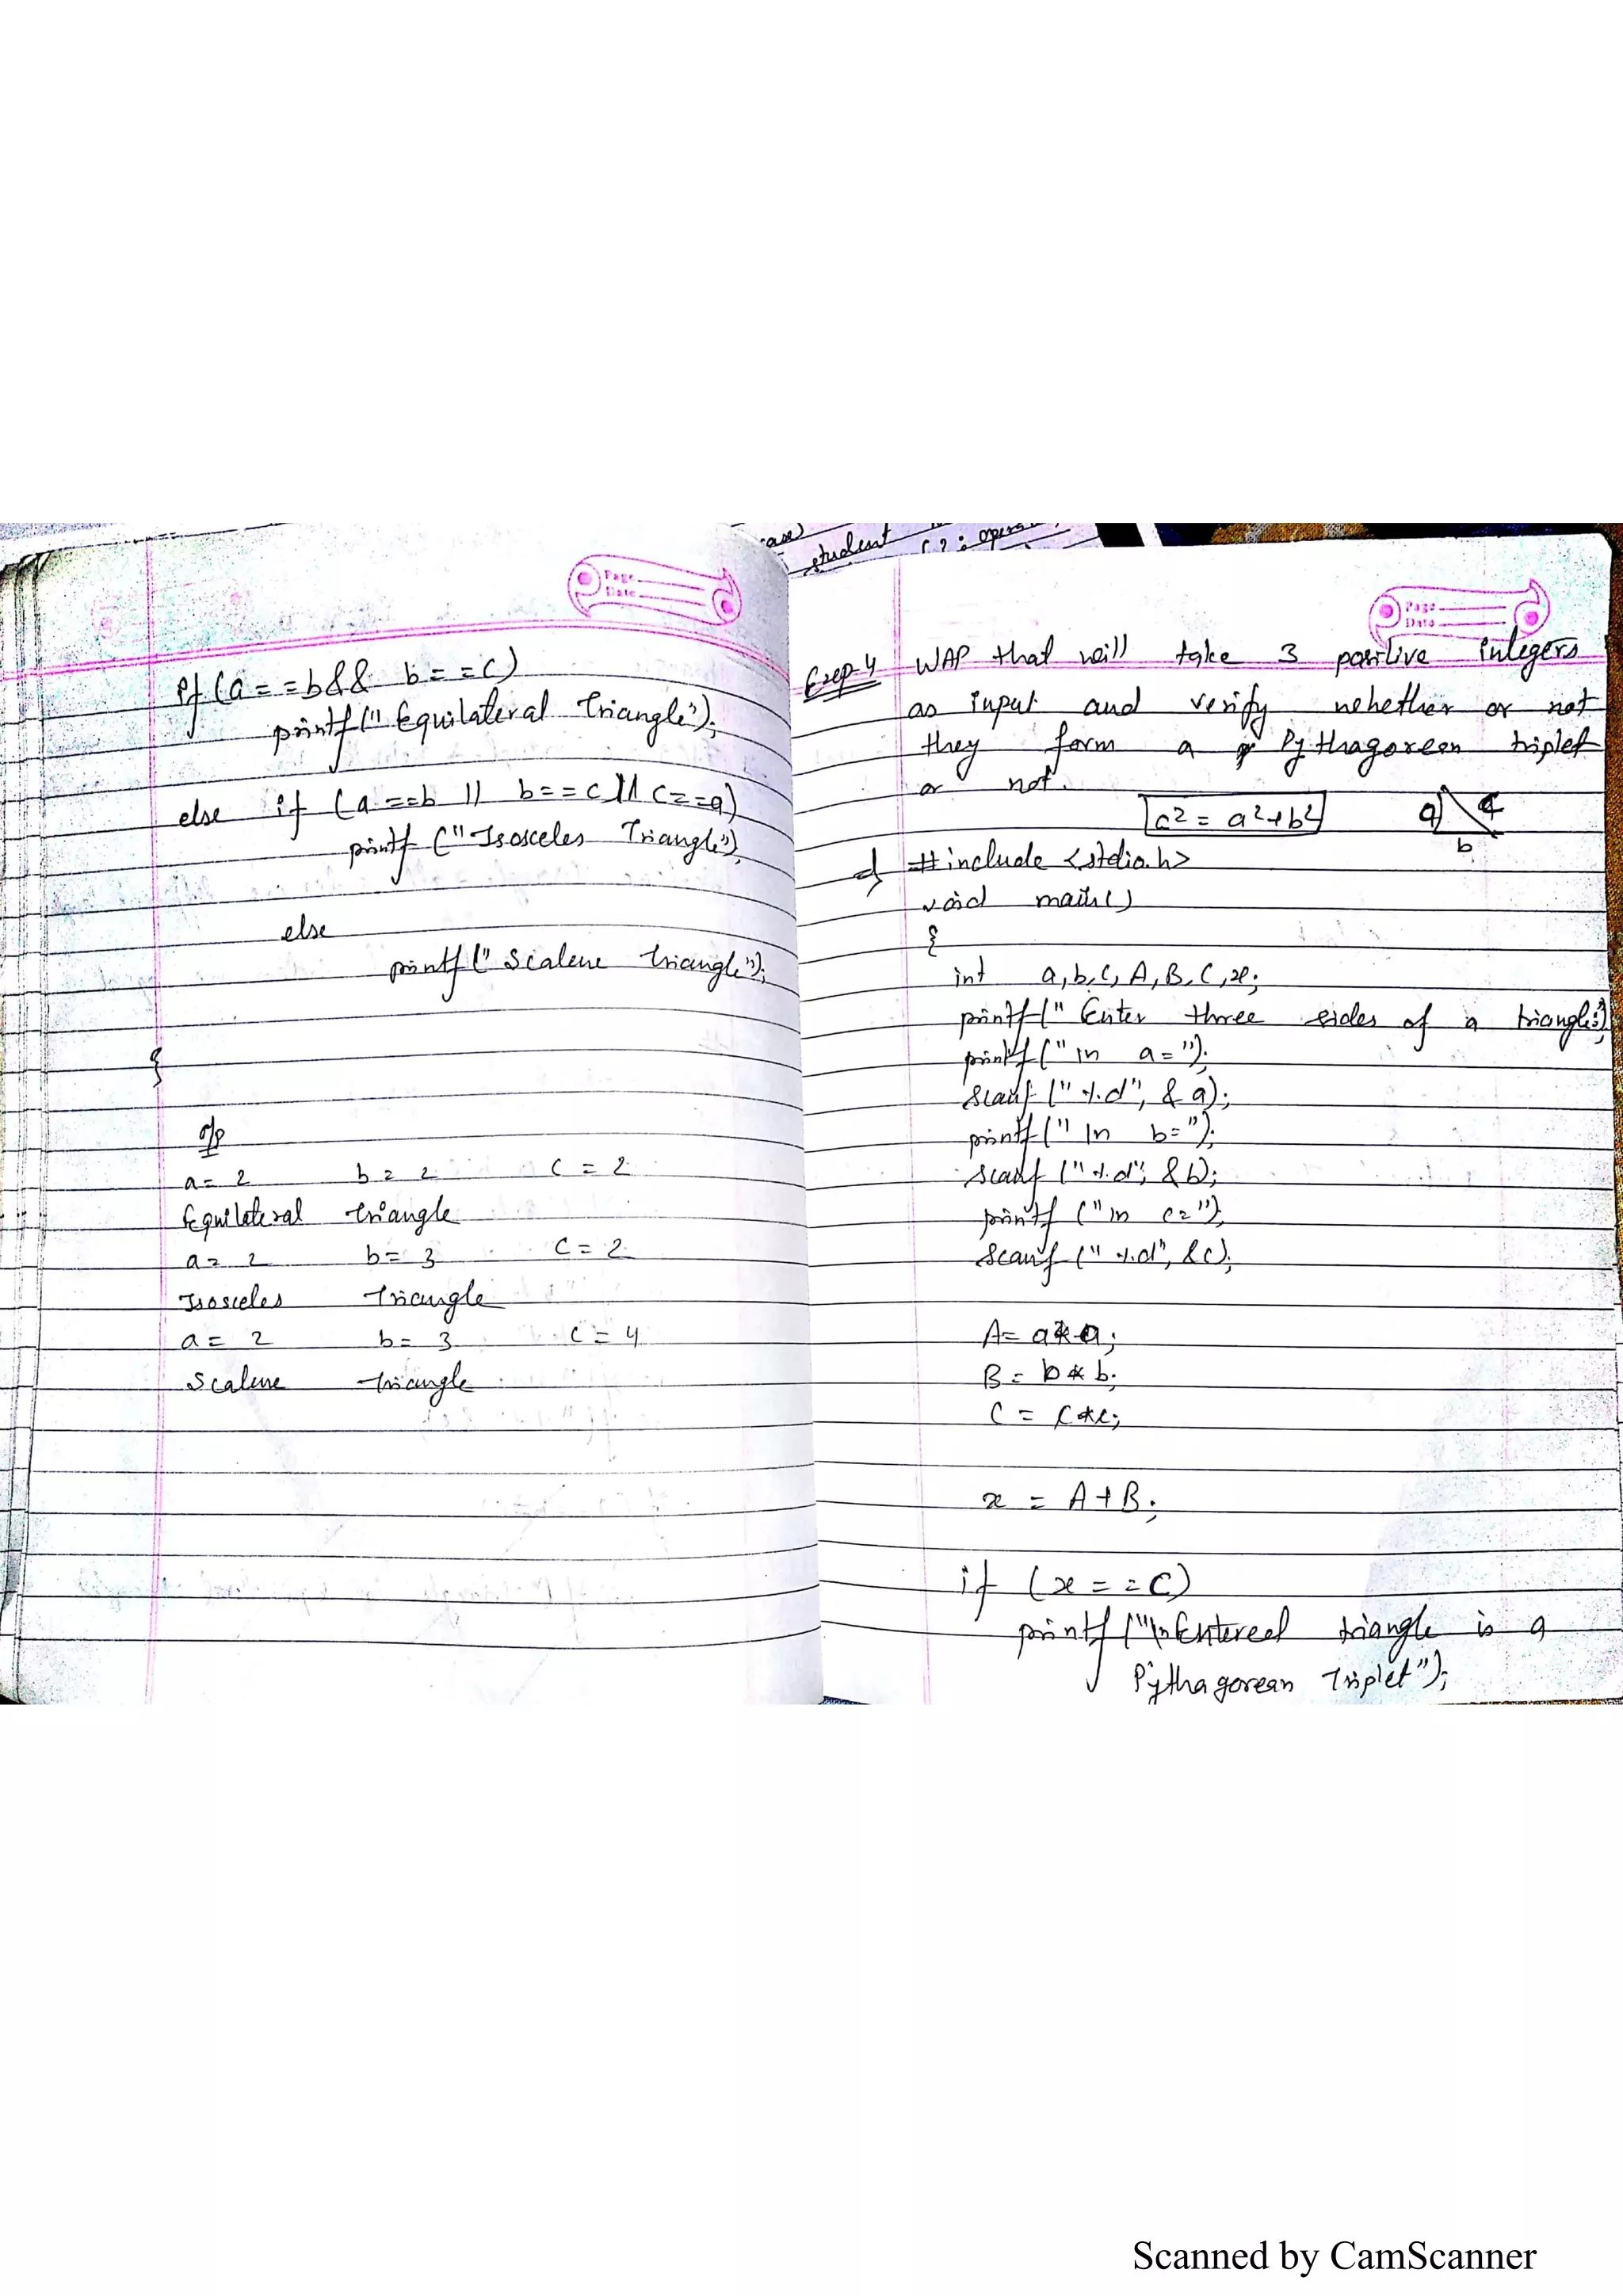 Page
Date
if (a==b && b==c)
printf(" Equilateral Triangle");
else if (a==b || b==c || c==a)
printf ("Isosceles Triangle");
else
printf(" Scalene triangle");
}
o/p
a= 2 b=2 c=2
Equilateral triangle
a=2 b=3 c=2
Isosceles Triangle
a=2 b=3 c=4
Scalene triangle
student (?: 
Page
Date
Exep-4 WAP that will take 3 positive integers
as input and verify whether or not
they form a Pythagorean triplet
or not.
c² = a²+b² a c
b
#include <stdio.h>
void main()
{
int a,b,c,A,B,C,x;
printf(" Enter three sides of a triangle:");
printf("\n a=");
scanf ("%d", &a);
printf("\n b=");
scanf ("%d", &b);
printf ("\n c=");
scanf ("%d", &c);
A= a*a;
B= b*b;
C= c*c;
x = A+B;
if (x==C)
printf ("\nEntered triangle is a
Pythagorean Triplet");
Scanned by CamScanner